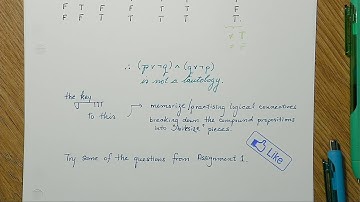 F T F F T T T
F F T T T T T
F T
F T
∴ (p∨¬q) ∧ (q∨¬p)
is not a tautology.
the key
to this → memorize/practising logical connectives
breaking down the compound propositions
into "bitesize" pieces.
Like
Try some of the questions from Assignment 1.